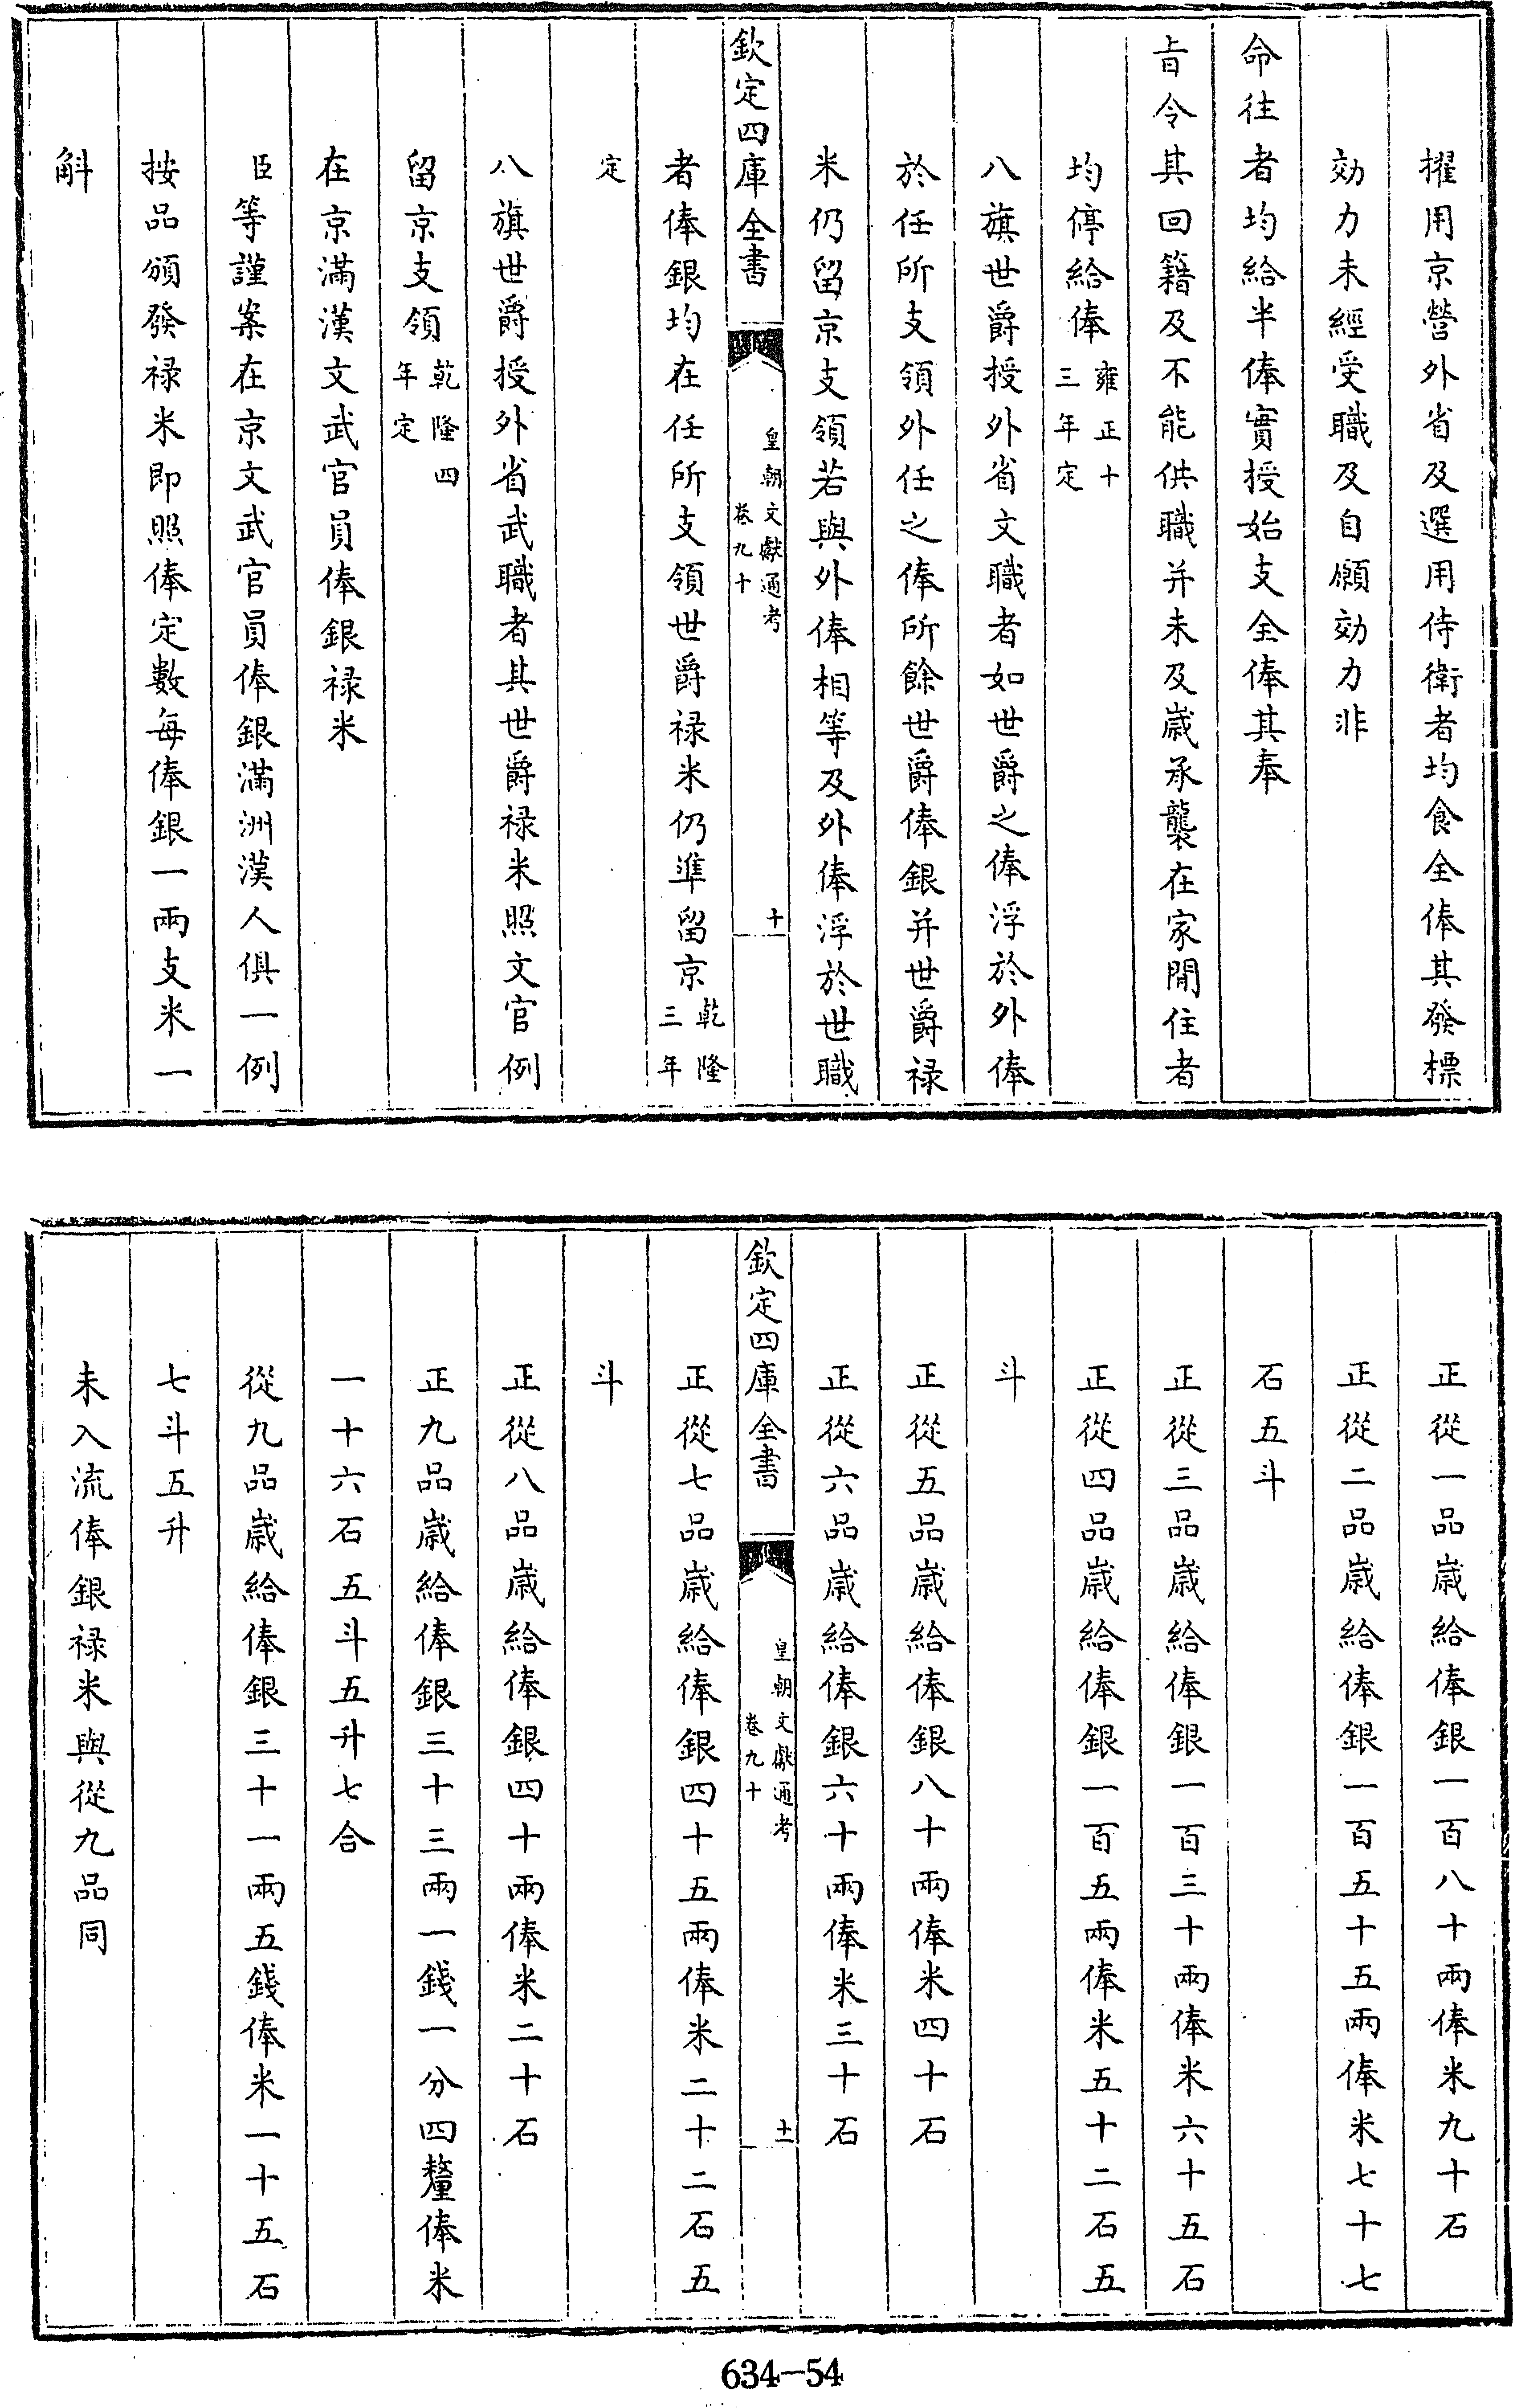 擢用京營外省及選用侍衛者均食全俸其發標
効力未經受職及自願効力非
命往者均給半俸實授始支全俸其奉
㫖令其回籍及不能供職并未及歲承襲在家閒住者
均停給俸雍正十三年定
八旗世爵授外省文職者如世爵之俸浮於外俸
於任所支領外任之俸所餘世爵俸銀并世爵祿
米仍留京支領若與外俸相等及外俸浮於世職
欽定四庫全書
皇朝文獻通考
卷九十
十
者俸銀均在任所支領世爵祿米仍準留京乾隆三年
定
八旗世爵授外省武職者其世爵祿米照文官例
留京支領乾隆四年定
在京滿漢文武官員俸銀祿米
臣等謹案在京文武官員俸銀滿洲漢人俱一例
按品頒發祿米即照俸定數每俸銀一兩支米一
斛
正從一品歲給俸銀一百八十兩俸米九十石
正從二品歲給俸銀一百五十五兩俸米七十七
石五斗
正從三品歲給俸銀一百三十兩俸米六十五石
正從四品歲給俸銀一百五兩俸米五十二石五
斗
正從五品歲給俸銀八十兩俸米四十石
正從六品歲給俸銀六十兩俸米三十石
欽定四庫全書
皇朝文獻通考
卷九十
十一
正從七品歲給俸銀四十五兩俸米二十二石五
斗
正從八品歲給俸銀四十兩俸米二十石
正九品歲給俸銀三十三兩一錢一分四釐俸米
一十六石五斗五升七合
從九品歲給俸銀三十一兩五錢俸米一十五石
七斗五升
未入流俸銀祿米與從九品同
634-54